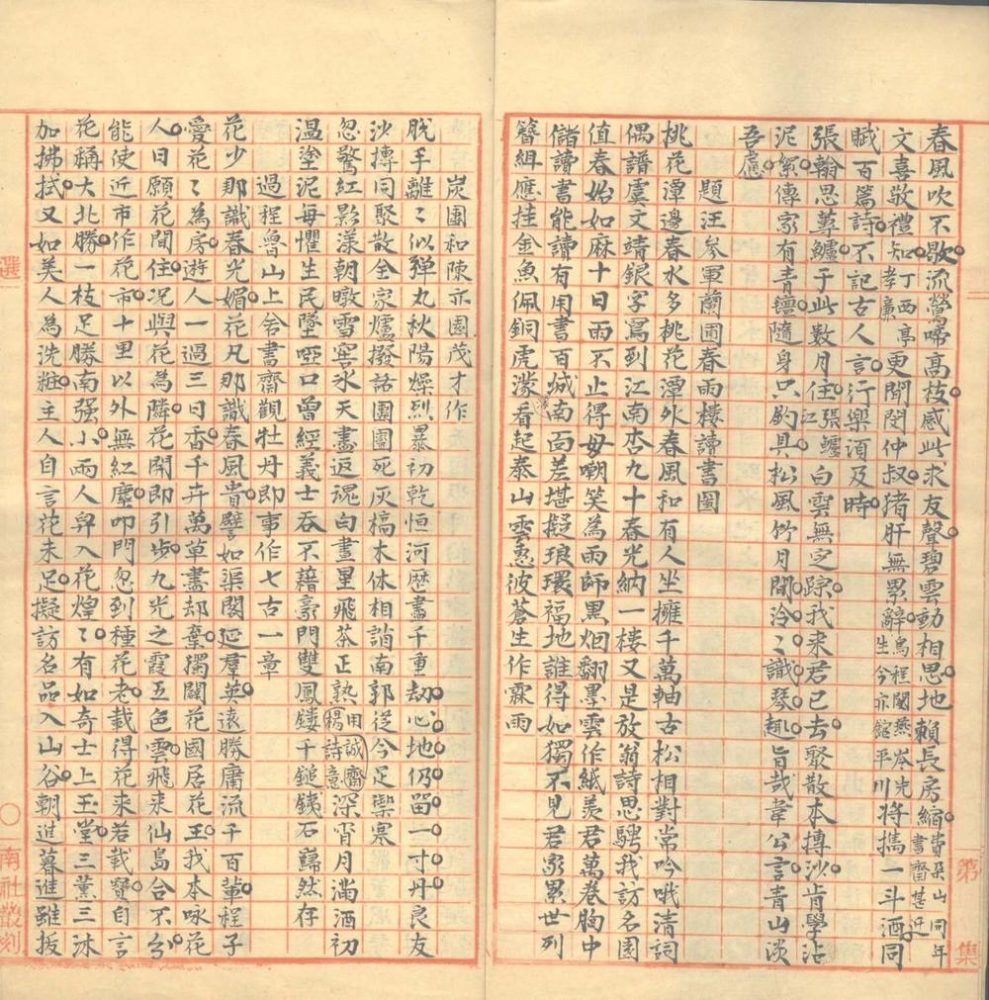 春風吹不歇流鶯啼高枝感此求友聲碧雲動相思地賴長房縮費朶山同年書齋甚近
文喜敬禮知丁酉亭孝廉更聞閔仲叔猪肝無累辭烏程閣燕岑光生今亦館平川將攜一斗酒同
賦百篇詩不記古人言行樂須及時
張翰思蓴鱸于此數月住張鱸江白雲無定踪我來君已去聚散本摶沙肯學沾
泥絮傳家有青氊隨身只釣具松風竹月間泠〻識琴趣旨哉韋公言青山淡
吾慮
題汪參軍蘭圃春雨樓讀書圖
桃花潭邊春水多桃花潭外春風和有人坐擁千萬軸古松相對常吟哦清詞
偶譜虞文靖銀字寫到江南杏九十春光納一樓又是放翁詩思騁我訪名園
值春始如麻十日雨不止得毋嘲笑為雨師黑烟翻墨雲作紙羡君萬卷胸中
儲讀書能讀有用書百城南面差堪擬琅環福地誰得如獨不見君家累世列
簪組應挂金魚佩銅虎濛濛看起泰山雲慰彼蒼生作霖雨
炭團和陳亦園茂才作
脫手離〻似彈丸秋陽燥烈暴初乾恒河歷盡千重劫心地仍留一寸丹良友
沙摶同聚散全家爐撥話團圞死灰槁木休相誚南郭從今足禦寒
忽驚紅影漾朝暾雪窖氷天盡返魂白晝星飛茶正熟用誠齋楊詩意深宵月滿酒初
温塗泥每懼生民墜啞口曾經義士吞不藉豪門雙鳳鏤千鎚鐵石巋然存
過程魯山上舍書齋觀牡丹即事作七古一章
花少那識春光媚花凡那識春風貴譬如渠閣延羣英遠勝庸流千百軰程子
愛花〻為房遊人一過三日香千卉萬草盡却棄獨闢花國居花王我本咏花
人日願花間住况與花為隣花開即引步九光之霞五色雲飛来仙島合不分
能使近市作花市十里以外無紅塵叩門忽到種花老載得花来若載寶自言
花稱大北勝一枝足勝南强小兩人舁入花煌〻有如奇士上玉堂三薰三沐
加拂拭又如美人為洗粧主人自言花未足擬訪名品入山谷朝進暮進雖扳
選
南社叢刻
第 集